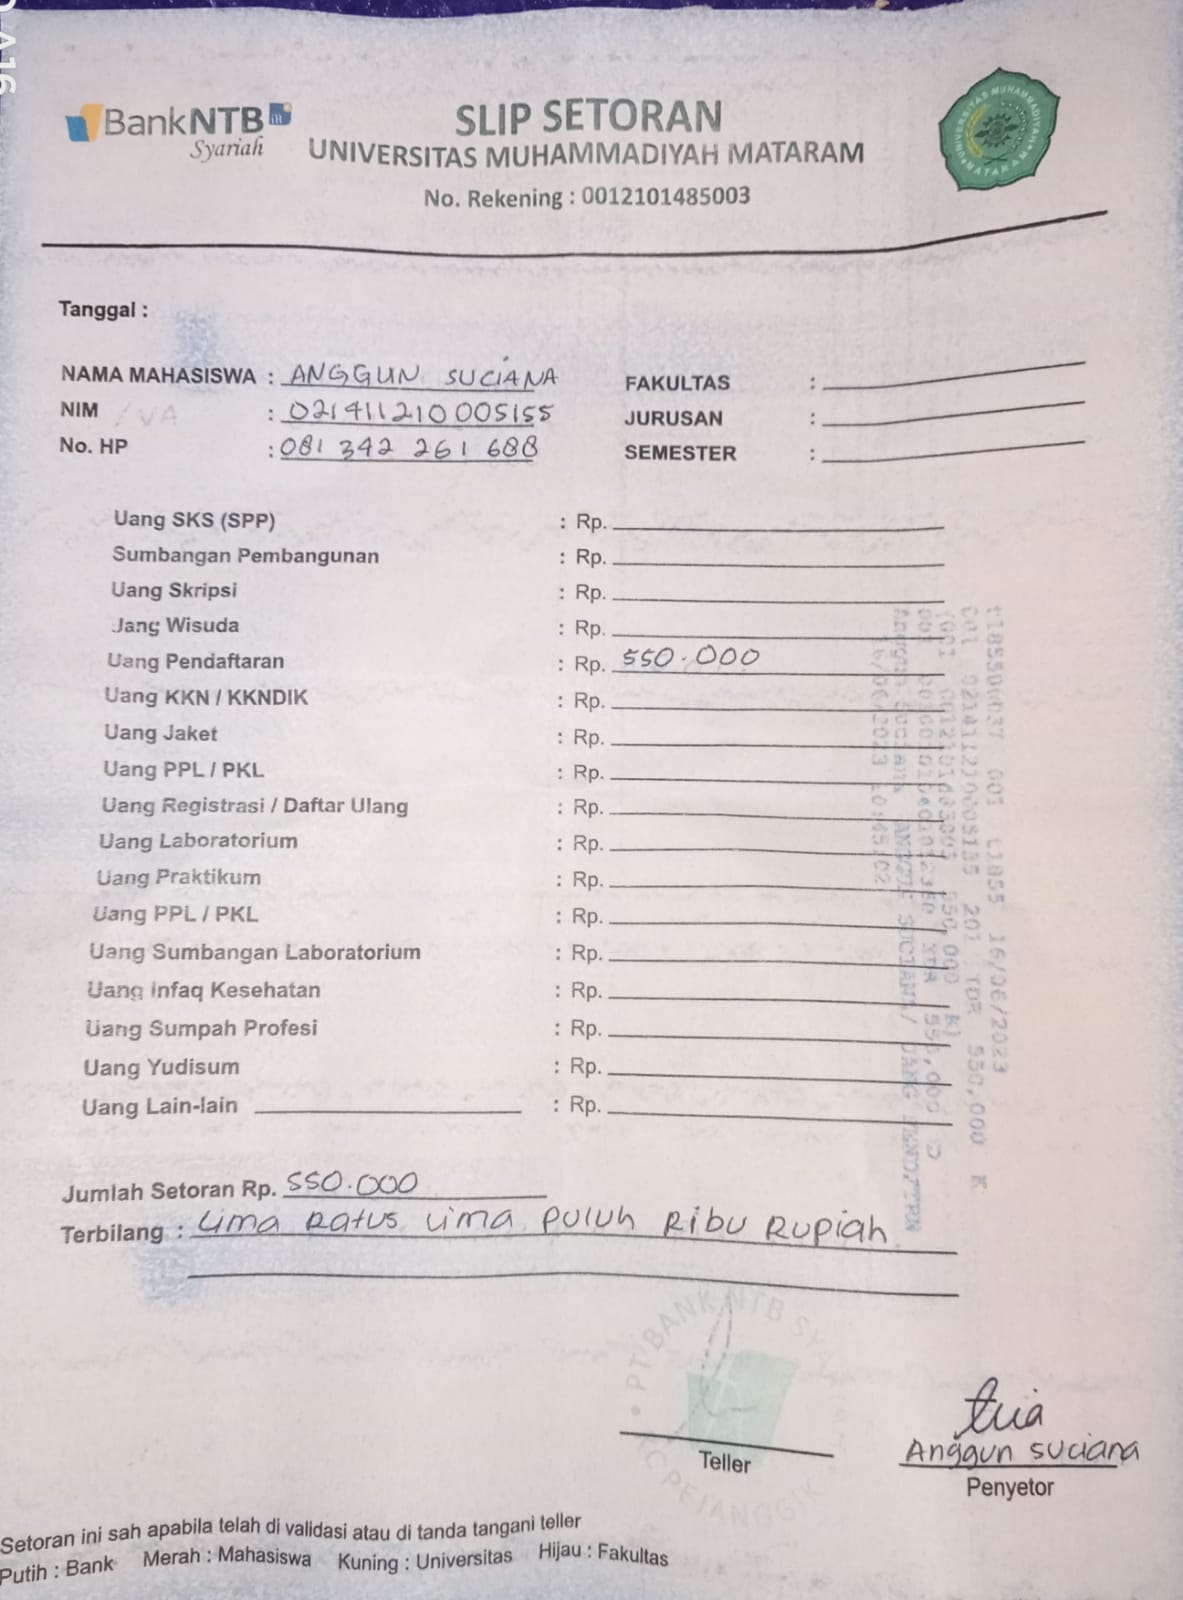 BankNTB
Syariah
SLIP SETORAN
UNIVERSITAS MUHAMMADIYAH MATARAM
No. Rekening : 0012101485003
UNIVERSITAS MUHAMMADIYAH
MATARAM
Tanggal :
NAMA MAHASISWA : ANGGUN SUCIANA
FAKULTAS :
NIM / VA : 021411210005155
JURUSAN :
No. HP : 081 342 261 688
SEMESTER :
Uang SKS (SPP) : Rp.
Sumbangan Pembangunan : Rp.
Uang Skripsi : Rp.
Uang Wisuda : Rp.
Uang Pendaftaran : Rp. 550.000
Uang KKN / KKNDIK : Rp.
Uang Jaket : Rp.
Uang PPL / PKL : Rp.
Uang Registrasi / Daftar Ulang : Rp.
Uang Laboratorium : Rp.
Uang Praktikum : Rp.
Uang PPL / PKL : Rp.
Uang Sumbangan Laboratorium : Rp.
Uang Infaq Kesehatan : Rp.
Uang Sumpah Profesi : Rp.
Uang Yudisum : Rp.
Uang Lain-lain : Rp.
001 16/06/2023
201 TDR 550,000 K
550,000
16/06/2023 10:45:02
Jumlah Setoran Rp. 550.000
Terbilang : Lima Ratus Lima Puluh Ribu Rupiah
PT BANK NTB SYA
PEJANGGIK
Teller
Anggun Suciana
Penyetor
Setoran ini sah apabila telah di validasi atau di tanda tangani teller
Putih : Bank Merah : Mahasiswa Kuning : Universitas Hijau : Fakultas